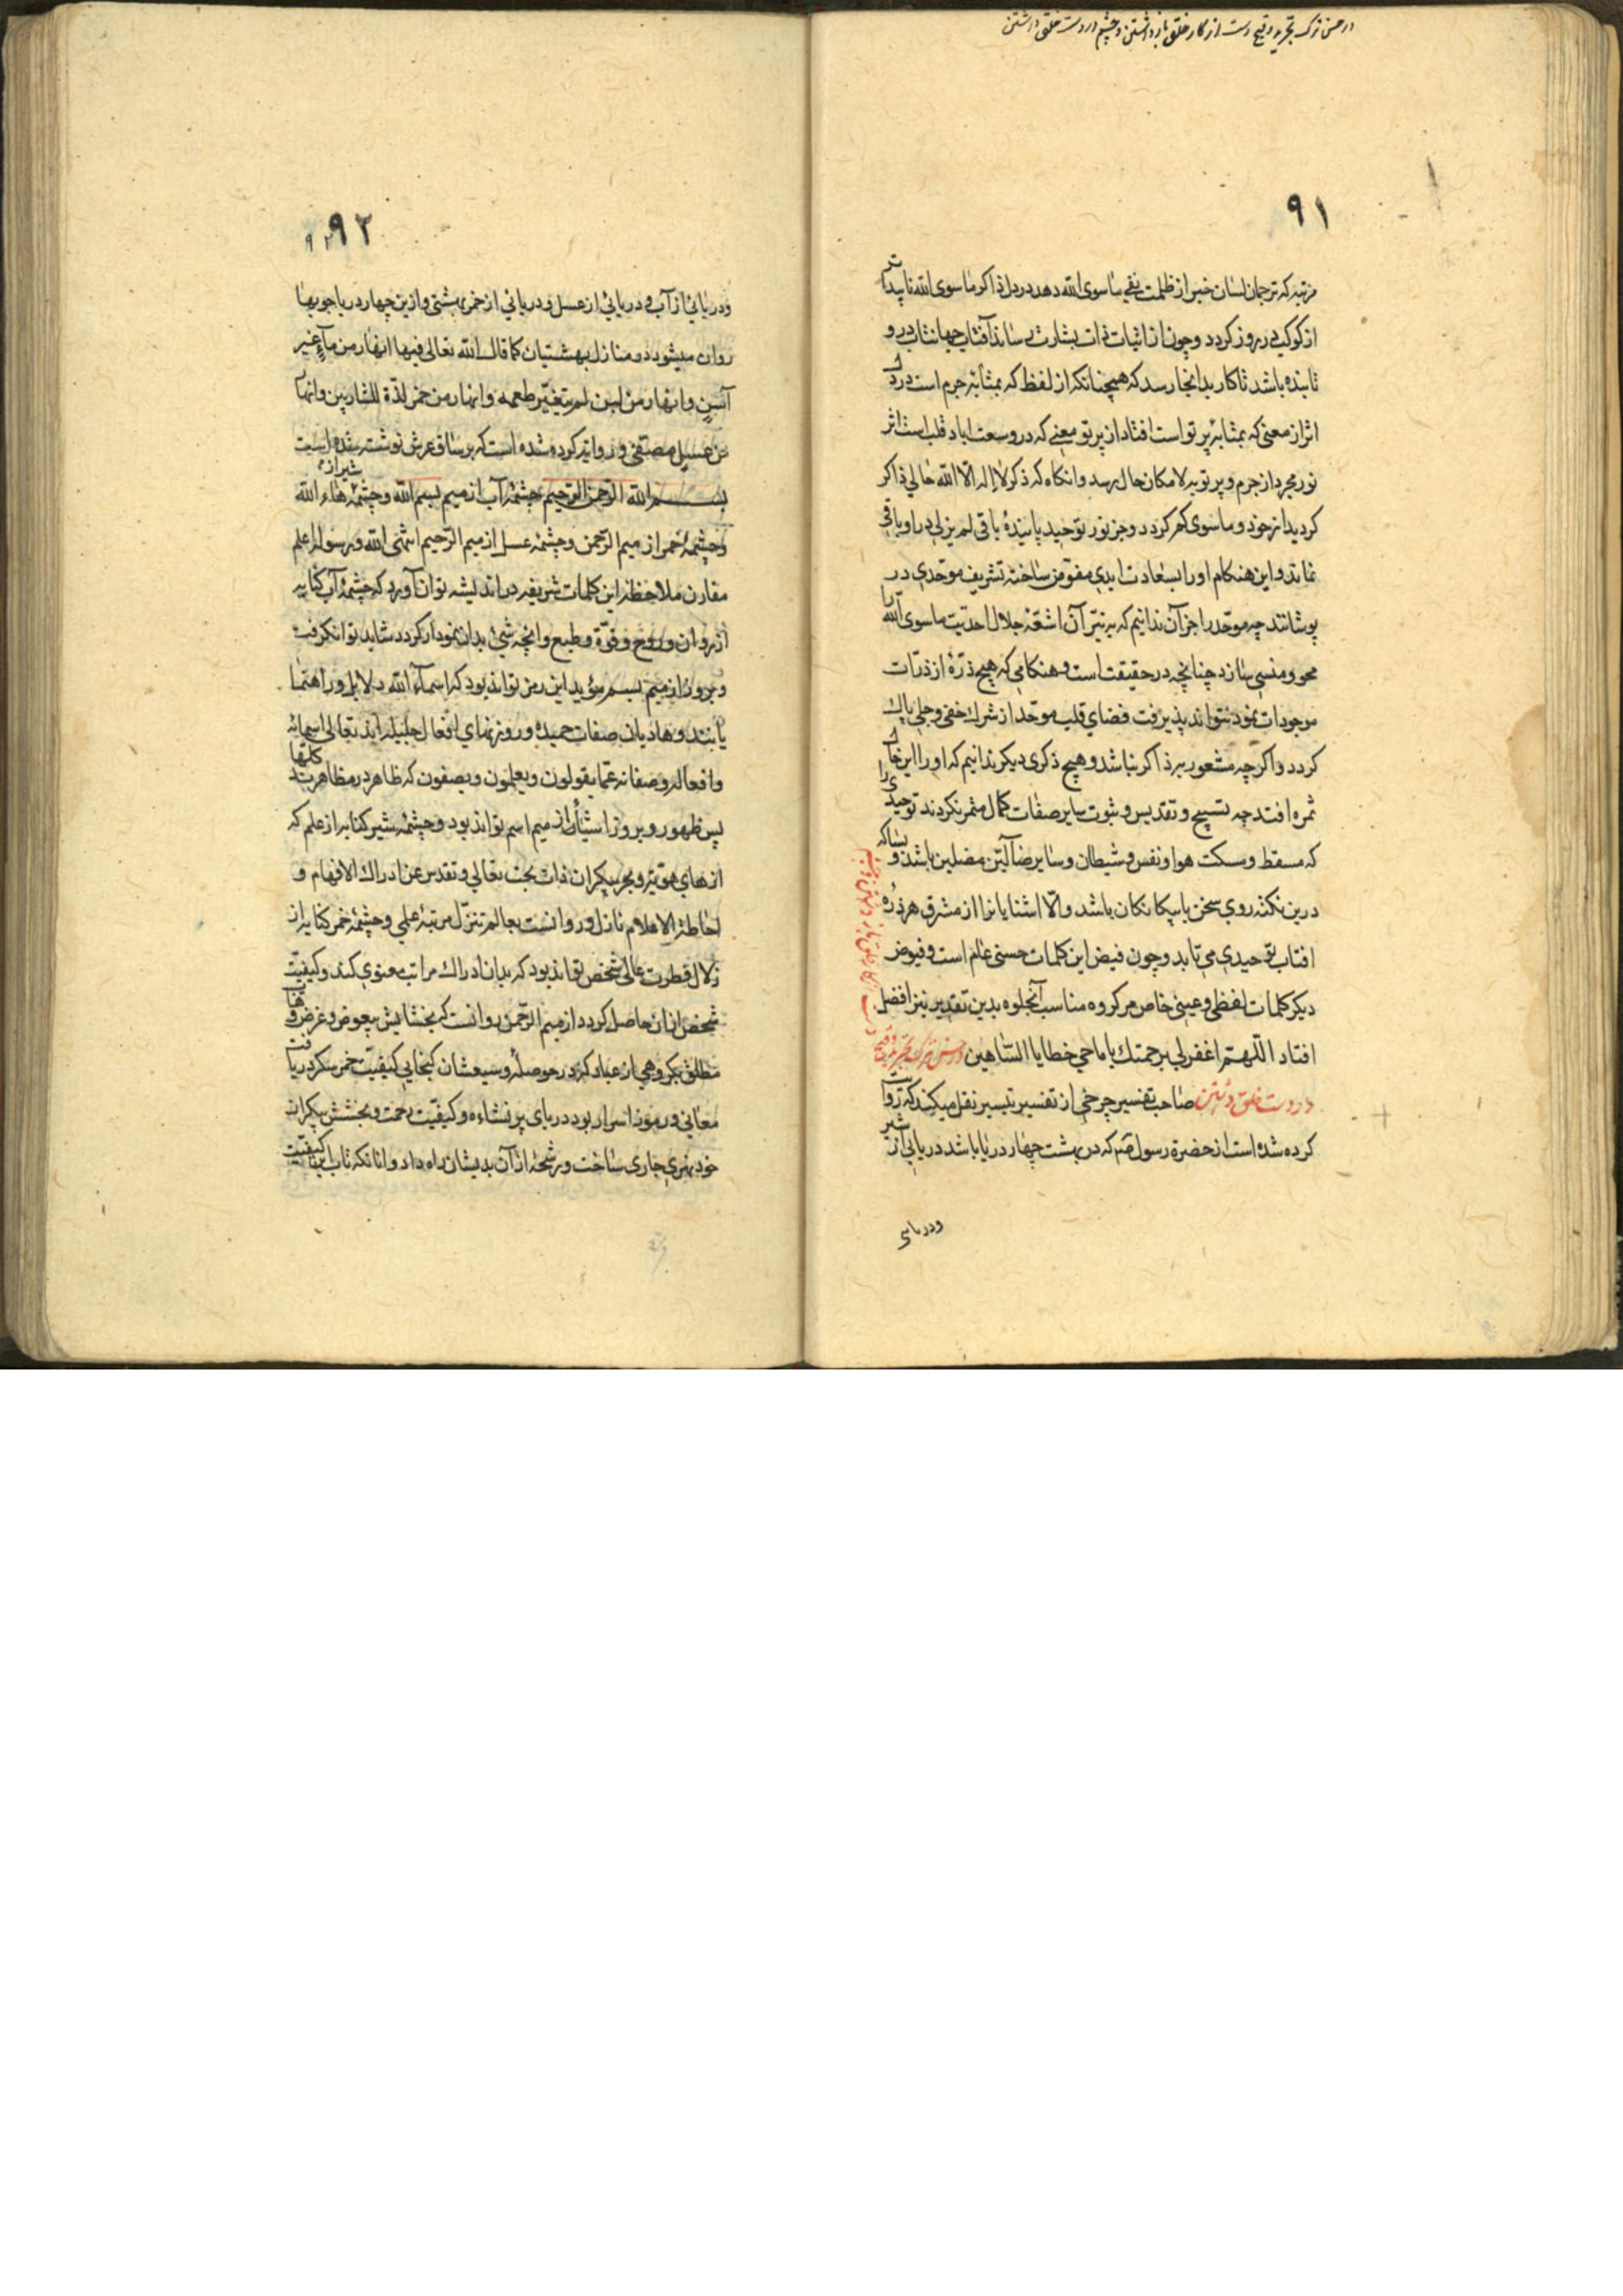 در حسن ترک تجرید و قبح دست از کار خلق باز داشتن و چشم در دست خلق داشتن
۹۱
مرتبه که ترجمان لسان خبر از ظلمت نفی ماسوی الله دهد در دل ذاکر ماسوی الله ناپیداتر
از کوکبی در روز کردد و چون از اثبات ذات بشارت رساند آفتاب جهانتاب درو
تابنده باشد تا کار بدانجا رسد که هیچنانکه از لفظ که بمثابه جرم است در دل
اثر از معنی که بمثابه پرتو است افتاد از پرتو معنی که در وسعت اباد قلب است اثر
نور مجرد از جرم و پرتو به لامکان حال رسد و انکاه که ذکر لا اله الا الله حالی ذاکر
کردید از خود و ماسوی کم کردد و جز نور توحید پاینده باقی لم یزلی در او باقی
نماند و این هنکام او را بسعادت ابدی مفوز ساخته تشریف موحدی در
پوشانند چه موحد را جز آن ندانیم که به نیر آن اشعه جلال احدیت ماسوی الله را
محو و منسی سازد چنانچه در حقیقت است و هنکامی که هیچ ذره از ذرات
موجودات نمود نتواند پذیرفت فضای قلب موحد از شرک خفی و جلی پاک
کردد و اکرچه مشعور به ذاکر نباشد و هیچ ذکری دیکر ندانیم که او را این حال
ثمره افتد چه تسبیح و تقدیس و ثبوت سایر صفات کمال مثمر نکردند توحیدی را
که مسقط و مسکت هوا و نفس و شیطان و سایر ضالین مضلین باشد و بساکه
درین نکته روی سخن با بیکانکان باشد و الا اشنایانرا از مشرق هر ذره
افتاب توحیدی می تابد و چون فیض این کلمات حسنی عام است و فیوض
دیکر کلمات لفظی و عینی خاص هر کروه مناسب آنجلوه بدین تقدیر نیز افضل
افتاد اللهم اغفر لی برحمتک یا ماحی خطایا الساهین در حسن ترک تجرید و قبح
دست از کار خلق باز داشتن و چشم
در دست خلق داشتن صاحب تفسیر چرخی از تفسیر تیسیر نقل میکند که روایت
کرده شده است از حضرة رسول صم که در بهشت چهار دریا باشد دریایی از شیر
ودریای
۹۲
۹۲
ودریائی از آب و دریائی از عسل و دریائی از خمر بهشتی و ازین چهار دریا جویها
روان میشود در منازل بهشتیان کما قال الله تعالی فیها انهار من مآء غیر
آسن و انهار من لبن لم یتغیر طعمه و انهار من خمر لذة للشاربین و انهار
من عسل مصفی و روایت کرده شده است که بر ساق عرش نوشته شده است
بسم الله الرحمن الرحیم چشمه آب از میم بسم الله و چشمه شیر از هاء الله
و چشمه خمر از میم الرحمن و چشمه عسل از میم الرحیم انتهی الله و رسوله اعلم
مقارن ملاحظه این کلمات شریفه در اندیشه توان آورد که چشمه آب کنایه
از روان و روح و قوة و طبع و انچه شیء بدان نمودار کردد شاید توانکرفت
و بروز از میم بسم مؤید این رمز تواند بود که اسمآء الله دلایل و راهنما
یابنده و هادیان صفات حمیده و روزنمای افعال جلیله ایزد تعالی اسمائه
و افعاله و صفاته عما یقولون و یعلمون و یصفون که ظاهر در مظاهرند کلها
پس ظهور و بروز اشیاء از میم اسم تواند بود و چشمه شیر کنایه از علم که
از های هویه و بحر بیکران ذات بحت تعالی و تقدس عن ادراک الافهام و
احاطة الاعلام نازل و روانست بعالم تنزل مرتبه علمی و چشمه خمر کنایه از
زلال فطرت عالی شخص تواند بود که بدان ادراک مراتب معنوی کند و کیفیت
شخص از ان حاصل کردد از میم الرحمن روانست که بخشایش بیعوض و غرض وهاب
مطلق بکروهی از عباد که در حوصله وسیعشان کنجایی کیفیت خمر سکر دریافت
معانی و رموز اسرار بود دریای پر نشاءه و کیفیت رحمت و بخشش بیکران
خود نهری جاری ساخت و رشحه از آن بدیشان راه داد و انانکه تاب این کیفیت